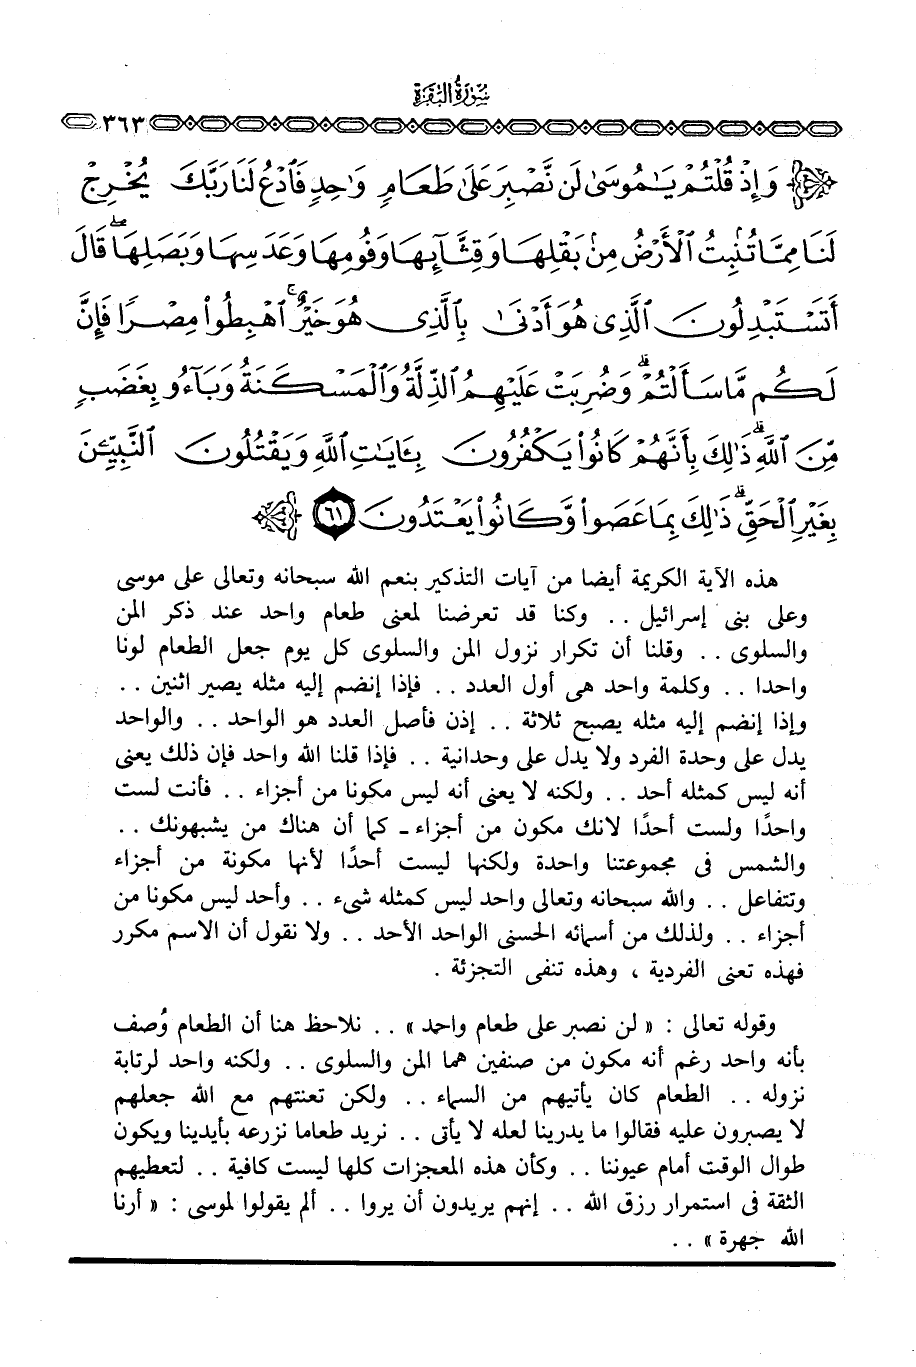 سُورَةُ البَقَرَة
٣٦٣
وَإِذْ قُلْتُمْ يَـٰمُوسَىٰ لَن نَّصْبِرَ عَلَىٰ طَعَامٍ وَٰحِدٍ فَٱدْعُ لَنَا رَبَّكَ يُخْرِجْ
لَنَا مِمَّا تُنۢبِتُ ٱلْأَرْضُ مِنۢ بَقْلِهَا وَقِثَّآئِهَا وَفُومِهَا وَعَدَسِهَا وَبَصَلِهَا ۖ قَالَ
أَتَسْتَبْدِلُونَ ٱلَّذِى هُوَ أَدْنَىٰ بِٱلَّذِى هُوَ خَيْرٌ ۚ ٱهْبِطُوا۟ مِصْرًا فَإِنَّ
لَكُم مَّا سَأَلْتُمْ ۗ وَضُرِبَتْ عَلَيْهِمُ ٱلذِّلَّةُ وَٱلْمَسْكَنَةُ وَبَآءُو بِغَضَبٍ
مِّنَ ٱللَّهِ ۗ ذَٰلِكَ بِأَنَّهُمْ كَانُوا۟ يَكْفُرُونَ بِـَٔايَـٰتِ ٱللَّهِ وَيَقْتُلُونَ ٱلنَّبِيِّـۧنَ
بِغَيْرِ ٱلْحَقِّ ۗ ذَٰلِكَ بِمَا عَصَوا۟ وَّكَانُوا۟ يَعْتَدُونَ ٦١
هذه الآية الكريمة أيضا من آيات التذكير بنعم الله سبحانه وتعالى على موسى
وعلى بنى إسرائيل .. وكنا قد تعرضنا لمعنى طعام واحد عند ذكر المن
والسلوى .. وقلنا أن تكرار نزول المن والسلوى كل يوم جعل الطعام لونا
واحدا .. وكلمة واحد هى أول العدد .. فإذا إنضم إليه مثله يصير اثنين ..
وإذا إنضم إليه مثله يصبح ثلاثة .. إذن فأصل العدد هو الواحد .. والواحد
يدل على وحدة الفرد ولا يدل على وحدانية .. فإذا قلنا الله واحد فإن ذلك يعنى
أنه ليس كمثله أحد .. ولكنه لا يعنى أنه ليس مكونا من أجزاء .. فأنت لست
واحدًا ولست أحدًا لانك مكون من أجزاء - كما أن هناك من يشبهونك ..
والشمس فى مجموعتنا واحدة ولكنها ليست أحدًا لأنها مكونة من أجزاء
وتتفاعل .. والله سبحانه وتعالى واحد ليس كمثله شىء .. وأحد ليس مكونا من
أجزاء .. ولذلك من أسمائه الحسنى الواحد الأحد .. ولا نقول أن الاسم مكرر
فهذه تعنى الفردية ، وهذه تنفى التجزئة .
وقوله تعالى : « لن نصبر على طعام واحد » .. نلاحظ هنا أن الطعام وُصف
بأنه واحد رغم أنه مكون من صنفين هما المن والسلوى .. ولكنه واحد لرتابة
نزوله .. الطعام كان يأتيهم من السماء .. ولكن تعنتهم مع الله جعلهم
لا يصبرون عليه فقالوا ما يدرينا لعله لا يأتى .. نريد طعاما نزرعه بأيدينا ويكون
طوال الوقت أمام عيوننا .. وكأن هذه المعجزات كلها ليست كافية .. لتعطيهم
الثقة فى استمرار رزق الله .. إنهم يريدون أن يروا .. ألم يقولوا لموسى : « أرنا
الله جهرة » ..